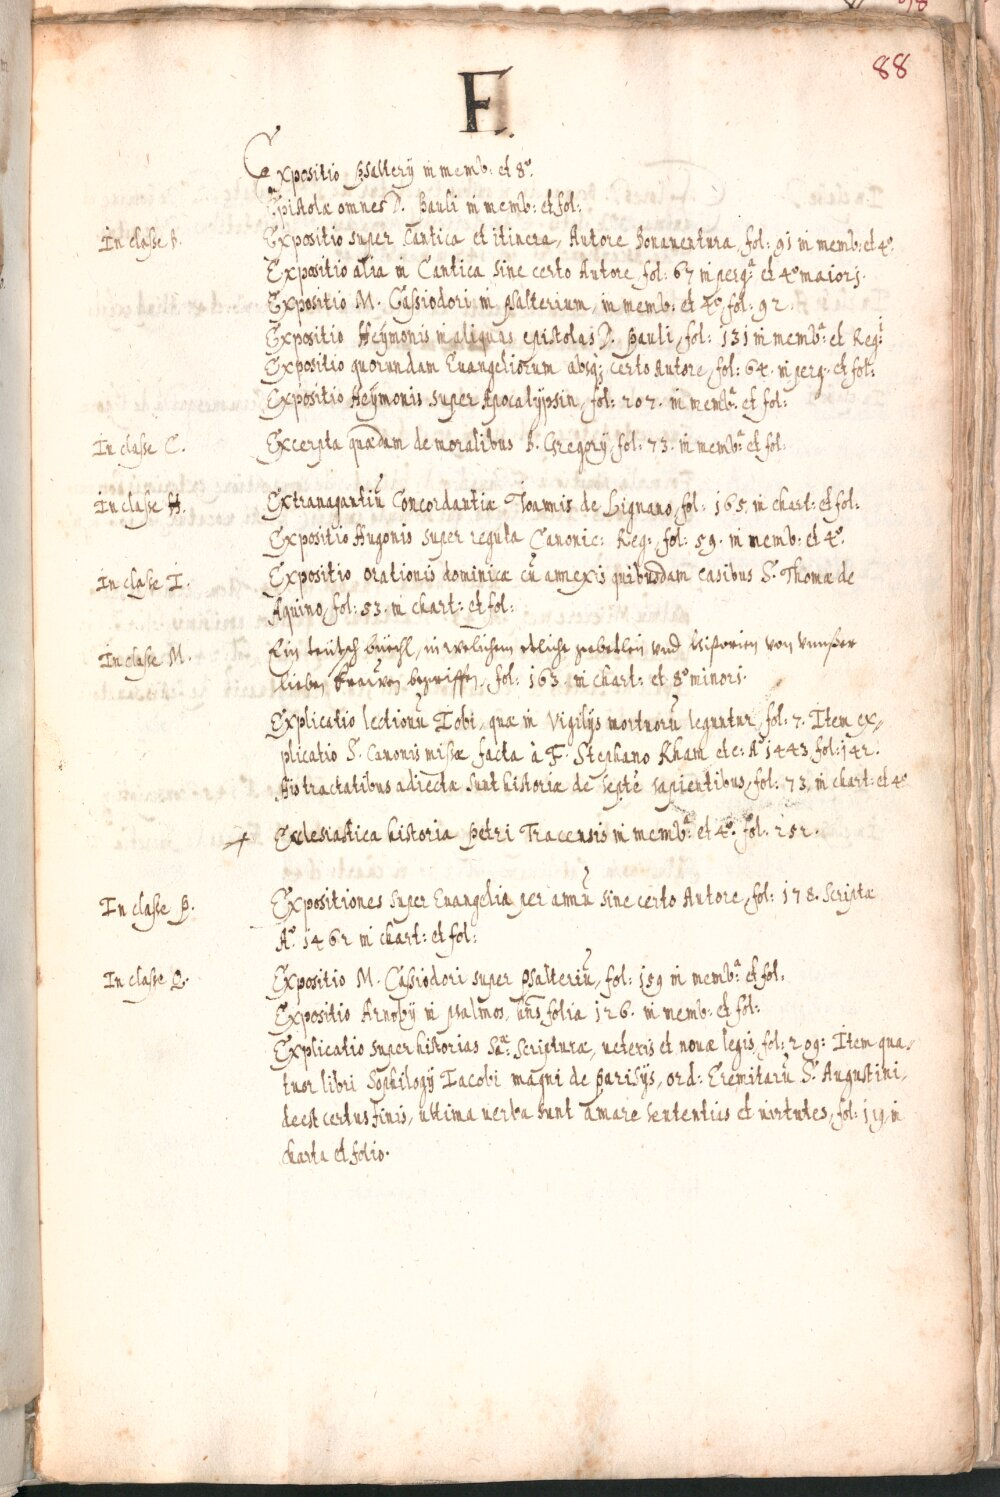 88
E.
Expositio Psalterij in memb: et 8º.
Epistolæ omnes D. Pauli in memb: et fol:
In classe b. Expositio super Cantica et itinera, Autore Bonauentura, fol: 91 in memb: et 4º.
Expositio alia in Cantica sine certo Autore fol: 67 in perg: et 4º maiori.
Expositio M. Cassiodori in psalterium, in memb: et 4º, fol: 92.
Expositio Heymonis in aliquas epistolas D. Pauli, fol: 131 in memb: et Reg:
Expositio quorundam Euangeliorum absq; certo Autore, fol: 64. in perg. et fol:
Expositio Heymonis super Apocalypsin, fol: 207. in memb: et fol:
In classe C. Excerpta quædam de moralibus B. Gregorij, fol: 73. in memb: et fol:
In classe H. Extrauagantiũ Concordantiæ Ioannis de Lignano, fol: 165, in chart: et fol:
Expositio Hugonis super regula Canonic: Reg:, fol: 59. in memb: et 4º.
In classe I. Expositio orationis dominicæ cũ annexis quibusdam casibus S. Thomæ de
Aquino, fol: 53. in chart: et fol:
In classe M. Ein teütsch büechl, in welichem etliche gebettlein vnd historien von vnnser
lieben Frauwen begriffen, fol: 163. in chart: et 8º minori.
Explicatio lectionũ Iobi, quæ in Vigilijs mortuorũ leguntur, fol: 7. Item ex,,
plicatio S. Canonis missæ facta à F. Stephano Rham etc: Aº 1443, fol: 142.
His tractatibus adiectæ sunt historiæ de septẽ sapientibus, fol: 73, in chart: et 4º
+ Ecclesiastica historia Petri Tracensis in memb: et 4º. fol: 252.
In classe P. Expositiones super Euangelia per annũ sine certo Autore, fol: 178. Scripta
Aº. 1462 in chart: et fol:
In classe Q. Expositio M. Cassiodori super Psalteriũ, fol: 159 in memb: et fol:
Expositio Arnobij in psalmos, folia 126. in memb: et fol:
Explicatio super historias Sæ: Scripturæ, ueteris et nouæ legis, fol: 209: Item qua,,
tuor libri Sophilogij Iacobi magni de Parisijs, ord: Eremitarũ S. Augustini,
deest certus finis, ultima uerba sunt amare sententias et uirtutes, fol: 19, in
charta et folio.